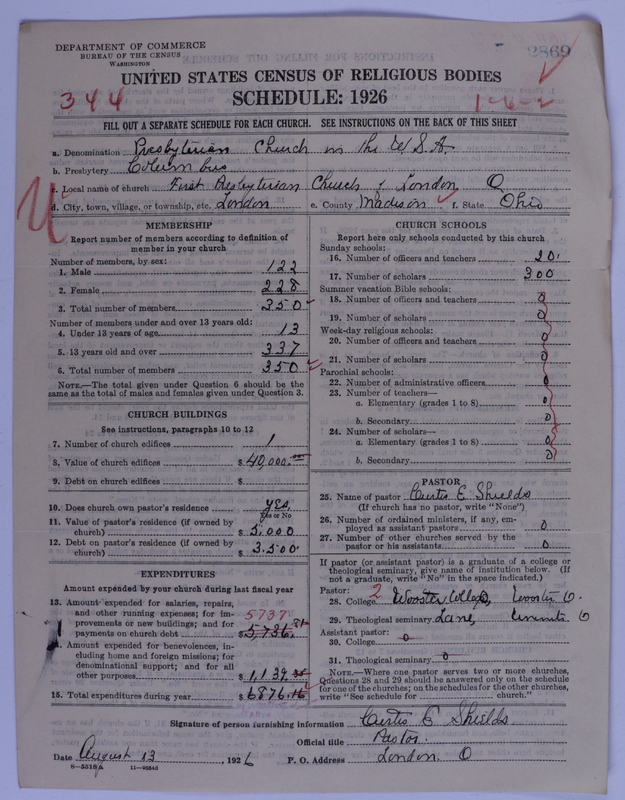 DEPARTMENT OF COMMERCE
BUREAU OF THE CENSUS
WASHINGTON
2869
UNITED STATES CENSUS OF RELIGIOUS BODIES
344
SCHEDULE: 1926
1-6-2
FILL OUT A SEPARATE SCHEDULE FOR EACH CHURCH. SEE INSTRUCTIONS ON THE BACK OF THIS SHEET
a. Denomination Presbyterian Church in the U.S.A.
b. Presbytery Columbus
c. Local name of church First Presbyterian Church of London, O
d. City, town, village, or township, etc. London e. County Madison f. State Ohio
MEMBERSHIP
Report number of members according to definition of
member in your church
Number of members, by sex:
1. Male 122
2. Female 228
3. Total number of members 350
Number of members under and over 13 years old:
4. Under 13 years of age 13
5. 13 years old and over 337
6. Total number of members 350
NOTE.—The total given under Question 6 should be the
same as the total of males and females given under Question 3.
CHURCH BUILDINGS
See instructions, paragraphs 10 to 12
7. Number of church edifices 1
8. Value of church edifices $ 40,000.00
9. Debt on church edifices $
10. Does church own pastor's residence yes
Yes or No
11. Value of pastor's residence (if owned by
church) $ 5,000
12. Debt on pastor's residence (if owned by
church) $ 3.500
EXPENDITURES
Amount expended by your church during last fiscal year
13. Amount expended for salaries, repairs,
and other running expenses; for im-
provements or new buildings; and for 5737
payments on church debt $ 5,736.81
14. Amount expended for benevolences, in-
cluding home and foreign missions; for
denominational support; and for all
other purposes $ 1,139.35
15. Total expenditures during year $ 6876.16
CHURCH SCHOOLS
Report here only schools conducted by this church
Sunday schools:
16. Number of officers and teachers 20
17. Number of scholars 300
Summer vacation Bible schools:
18. Number of officers and teachers 0
19. Number of scholars 0
Week-day religious schools:
20. Number of officers and teachers 0
21. Number of scholars 0
Parochial schools:
22. Number of administrative officers 0
23. Number of teachers—
a. Elementary (grades 1 to 8) 0
b. Secondary 0
24. Number of scholars—
a. Elementary (grades 1 to 8) 0
b. Secondary 0
PASTOR
25. Name of pastor Curtis E Shields
(If church has no pastor, write "None")
26. Number of ordained ministers, if any, em-
ployed as assistant pastors 0
27. Number of other churches served by the
pastor or his assistants 0
If pastor (or assistant pastor) is a graduate of a college or
theological seminary, give name of institution below. (If
not a graduate, write "No" in the space indicated.)
Pastor: 2
28. College Wooster College, Wooster O.
29. Theological seminary Lane, O
Assistant pastor:
30. College 0
31. Theological seminary 0
NOTE.—Where one pastor serves two or more churches,
Questions 28 and 29 should be answered only on the schedule
for one of the churches; on the schedules for the other churches,
write "See schedule for church."
Signature of person furnishing information Curtis E Shields
Official title Pastor.
Date August 13, 1926 P. O. Address London. O
8-5518a 11-9254